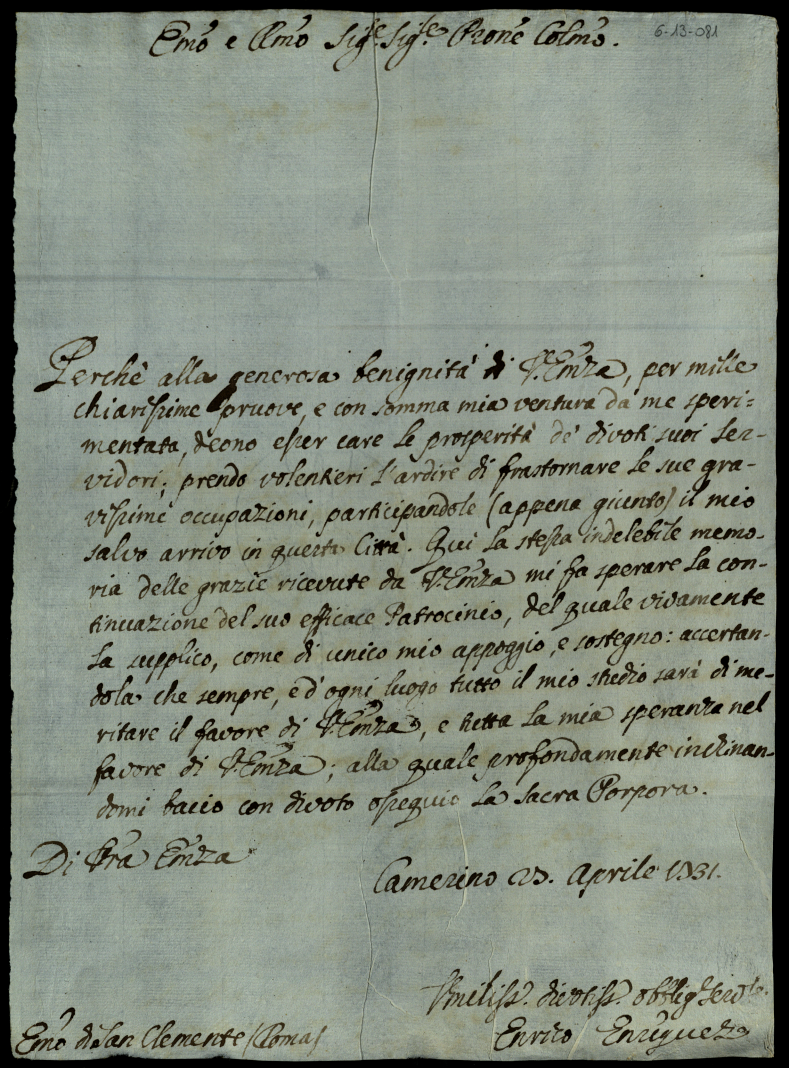 6-13-081
Emo e Rmo Sigre Sigre Prone Colmo.
Perchè alla generosa benignità di V. Emza, per mille
chiarissime pruove, e con somma mia ventura da me speri=
mentata, deono esser care le prosperità de' divoti suoi ser-
vidori; prendo volentieri l'ardire di frastornare le sue gra-
vissime occupazioni, participandole (appena giunto) il mio
salvo arrivo in questa Città. Qui la stessa indelebile memo-
ria delle grazie ricevute da V. Emza mi fa sperare la con-
tinuazione del suo efficace Patrocinio, del quale vivamente
la supplico, come di unico mio appoggio, e sostegno: accertan-
dola che sempre, e d'ogni luogo tutto il mio studio sarà di me-
ritare il favore di V. Emza, e tutta la mia speranza nel
favore di V. Emza; alla quale profondamente inchinan-
domi bacio con divoto ossequio la Sacra Porpora.
Di Vra Emza
Camerino 23. Aprile 1731.
Umiliss. divotiss. obblig. Serv.
Emo di San Clemente (Roma)
Enrico Enriquez